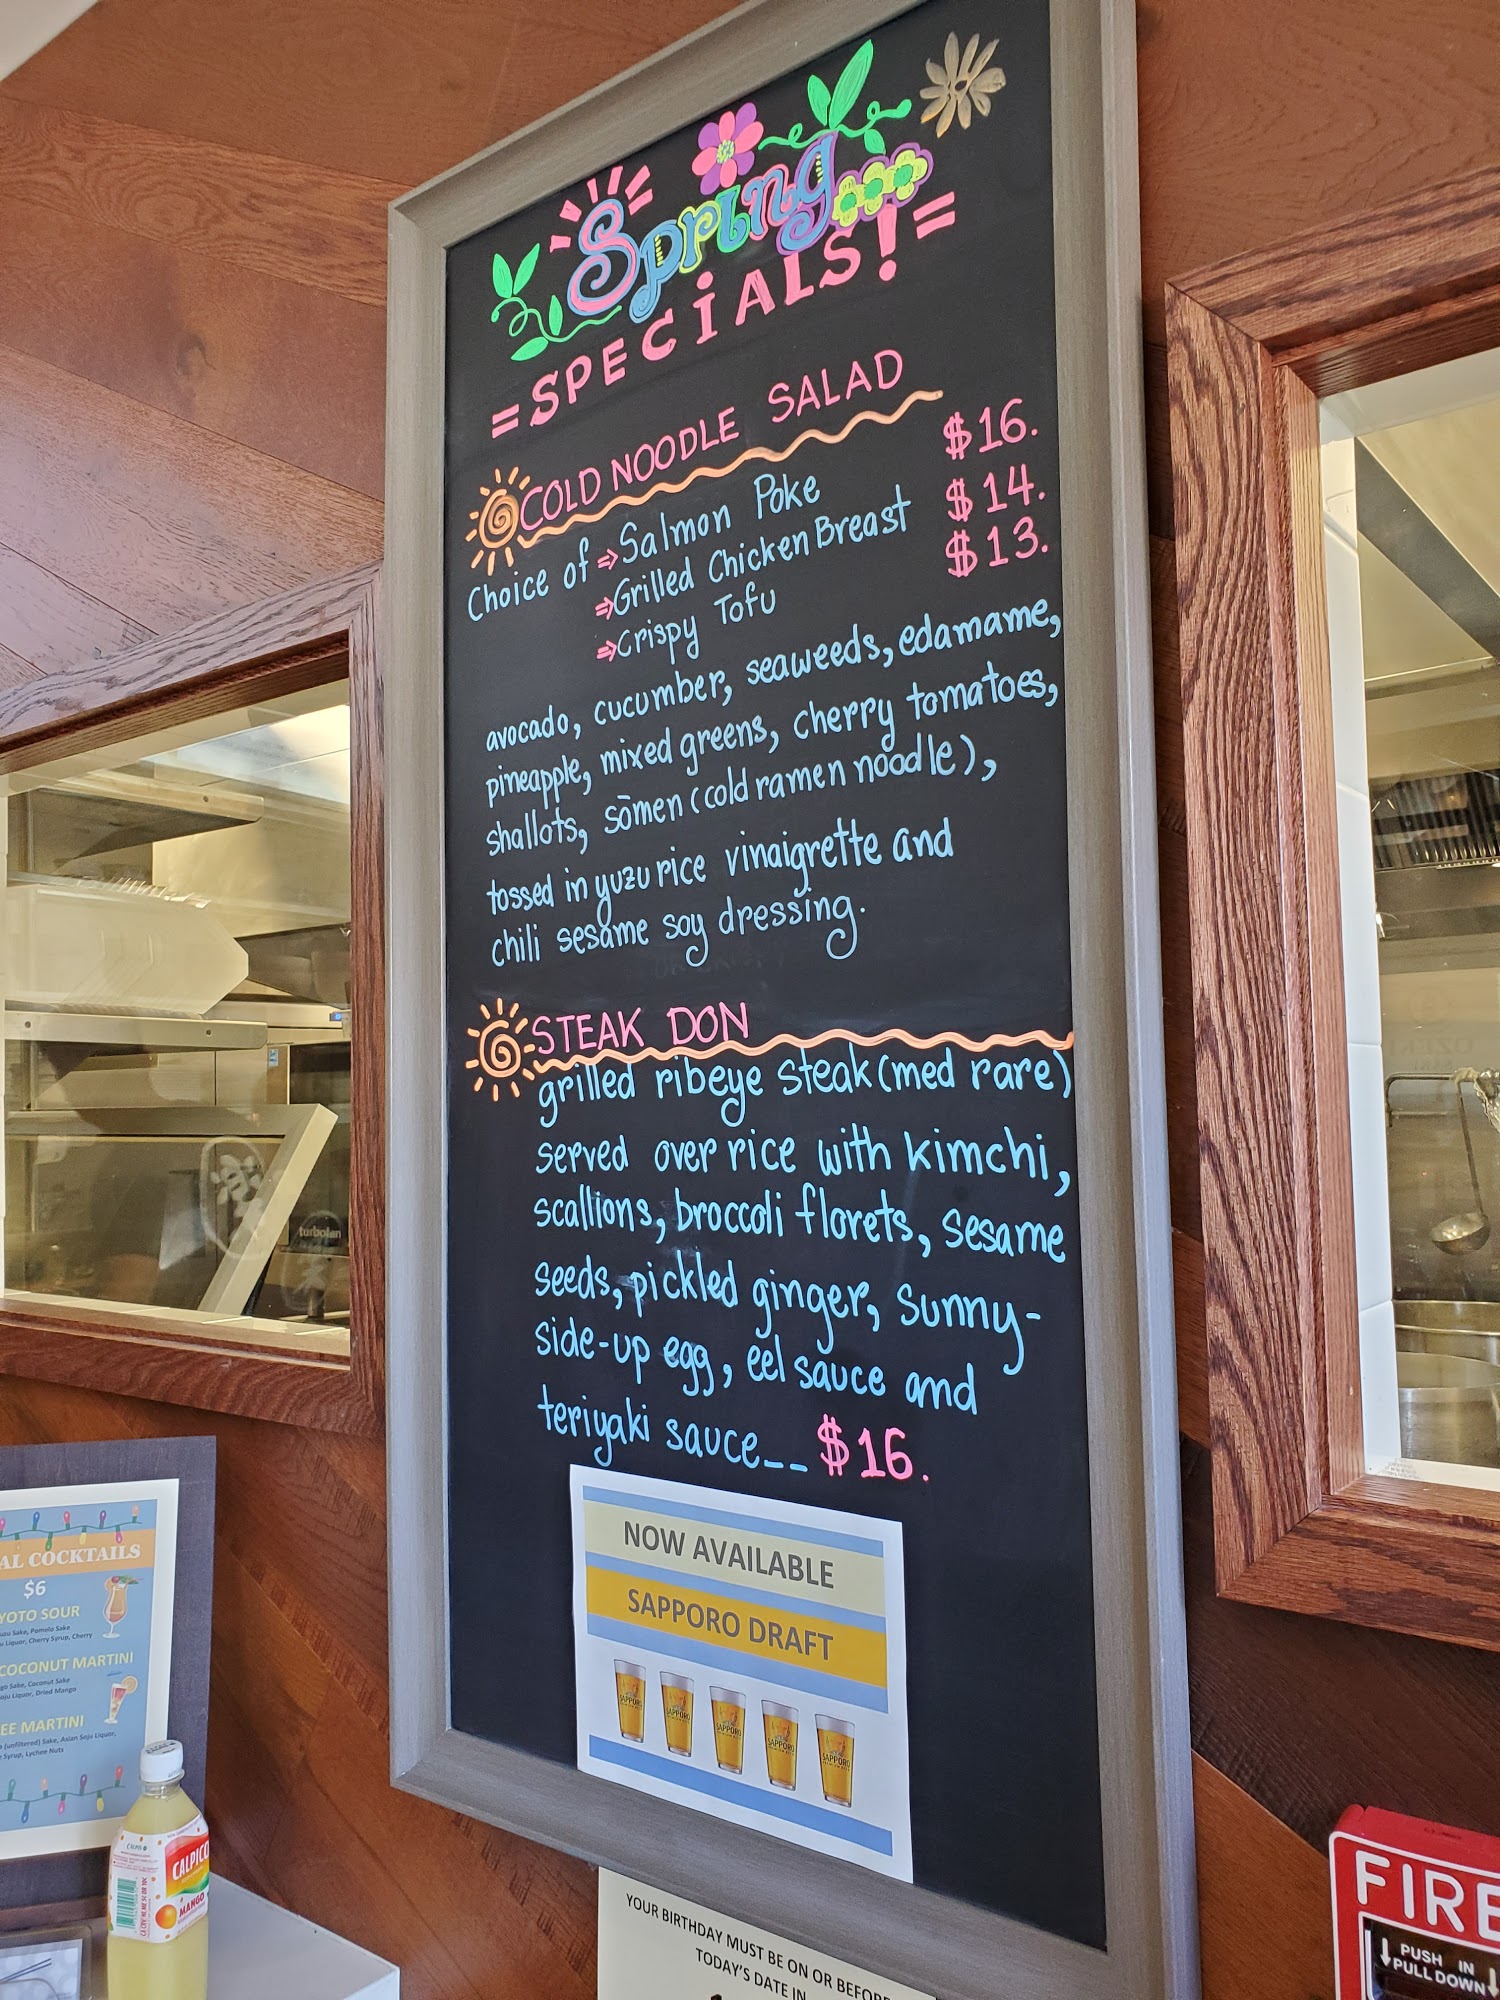 Spring...
=SPECIALS!=
COLD NOODLE SALAD
Choice of ⇒ Salmon Poke $16.
⇒ Grilled Chicken Breast $14.
⇒ Crispy Tofu $13.
avocado, cucumber, seaweeds, edamame,
pineapple, mixed greens, cherry tomatoes,
shallots, sōmen (cold ramen noodle),
tossed in yuzu rice vinaigrette and
chili sesame soy dressing.
STEAK DON
grilled ribeye steak (med rare)
served over rice with kimchi,
scallions, broccoli florets, sesame
seeds, pickled ginger, sunny-
side-up egg, eel sauce and
teriyaki sauce__ $16.
NOW AVAILABLE
SAPPORO DRAFT
SAPPORO
SAPPORO
SAPPORO
SAPPORO
SAPPORO
YOUR BIRTHDAY MUST BE ON OR BEFORE
TODAY'S DATE IN
AL COCKTAILS
$6
YOTO SOUR
zu Sake, Pomelo Sake
u Liquor, Cherry Syrup, Cherry
COCONUT MARTINI
go Sake, Coconut Sake
oju Liquor, Dried Mango
EE MARTINI
(unfiltered) Sake, Asian Soju Liquor,
Syrup, Lychee Nuts
CALPICO
MANGO
turbofan
FIRE
PUSH IN
PULL DOWN